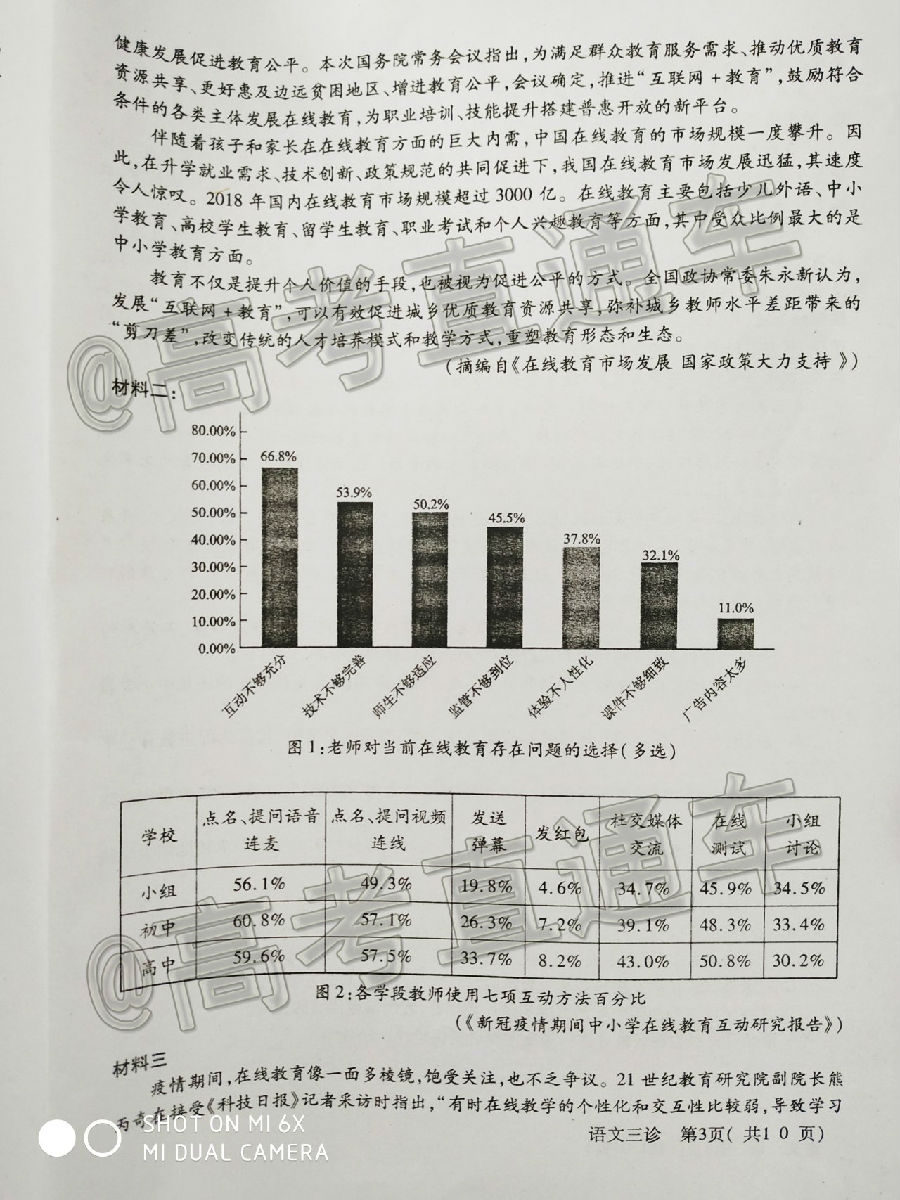 健康发展促进教育公平。本次国务院常务会议指出,为满足群众教育服务需求、推动优质教育
资源共享、更好惠及边远贫困地区、增进教育公平,会议确定,推进“互联网+教育”,鼓励符合
条件的各类主体发展在线教育,为职业培训、技能提升搭建普惠开放的新平台。
伴随着孩子和家长在在线教育方面的巨大内需,中国在线教育的市场规模一度攀升。因
此,在升学就业需求、技术创新、政策规范的共同促进下,我国在线教育市场发展迅猛,其速度
令人惊叹。2018年国内在线教育市场规模超过3000亿。在线教育主要包括少儿外语、中小
学教育、高校学生教育、留学生教育、职业考试和个人兴趣教育等方面,其中受众比例最大的是
中小学教育方面。
教育不仅是提升个人价值的手段,也被视为促进公平的方式。全国政协常委朱永新认为,
发展“互联网+教育”,可以有效促进城乡优质教育资源共享,弥补城乡教师水平差距带来的
“剪刀差”,改变传统的人才培养模式和教学方式,重塑教育形态和生态。
(摘编自《在线教育市场发展 国家政策大力支持》)
@高考直通车
材料二:
80.00%
70.00%
60.00%
50.00%
40.00%
30.00%
20.00%
10.00%
0.00%
66.8%
53.9%
50.2%
45.5%
37.8%
32.1%
11.0%
互动不够充分
技术不够完善
师生不够适应
监管不够到位
体验不人性化
课件不够细致
广告内容太多
图1:老师对当前在线教育存在问题的选择(多选)
学校 点名、提问语音连麦 点名、提问视频连线 发送弹幕 发红包 社交媒体交流 在线测试 小组讨论
小组 56.1% 49.3% 19.8% 4.6% 34.7% 45.9% 34.5%
初中 60.8% 57.1% 26.3% 7.2% 39.1% 48.3% 33.4%
高中 59.6% 57.5% 33.7% 8.2% 43.0% 50.8% 30.2%
@高考直通车
图2:各学段教师使用七项互动方法百分比
(《新冠疫情期间中小学在线教育互动研究报告》)
材料三
疫情期间,在线教育像一面多棱镜,饱受关注,也不乏争议。21世纪教育研究院副院长熊
丙奇在接受《科技日报》记者采访时指出,“有时在线教学的个性化和交互性比较弱,导致学习
语文三诊 第3页(共10页)
SHOT ON MI 6X
MI DUAL CAMERA